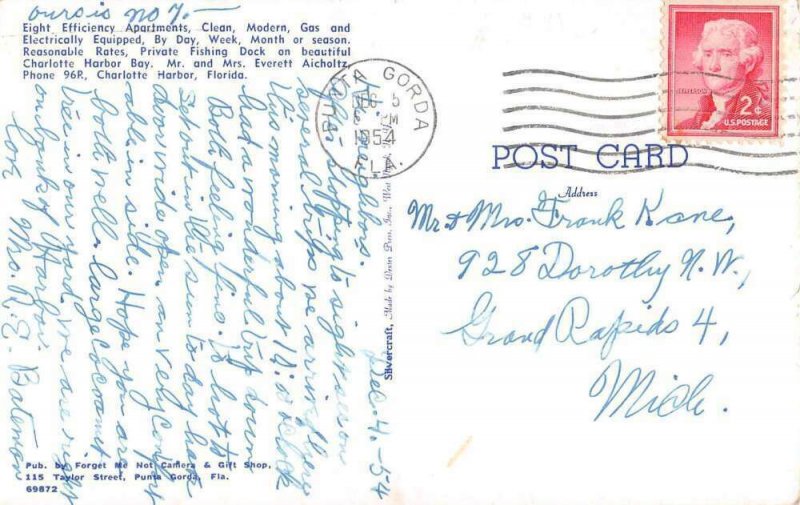 ours is no 7.—
Eight Efficiency Apartments, Clean, Modern, Gas and
Electrically Equipped, By Day, Week, Month or season.
Reasonable Rates, Private Fishing Dock on beautiful
Charlotte Harbor Bay. Mr. and Mrs. Everett Aicholtz,
Phone 96R, Charlotte Harbor, Florida.
Dec. 4.-54
Hi. Neighbors.
After stopping to sight see on
several trips we arrived here
this morning about 11. o'clock
had a wonderful trip down
Both feeling fine. To hot to
set out in the sun to day have
doors wide open. an very comfort
able in side. Hope you are
both well. large cocoanut
tree in our yard, we are right
on bank of Harbor.
Love Mrs. R. E. Bateman
Pub. by Forget Me Not Camera & Gift Shop,
115 Taylor Street, Punta Gorda, Fla.
69872
Silvercraft, Made by Dexter Press, Inc., West
PUNTA GORDA
DEC 5
M
1954
FLA.
JEFFERSON
2¢
U.S. POSTAGE
POST CARD
Address
Mr & Mrs. Frank Kane,
928 Dorothy N.W.,
Grand Rapids 4,
Mich.